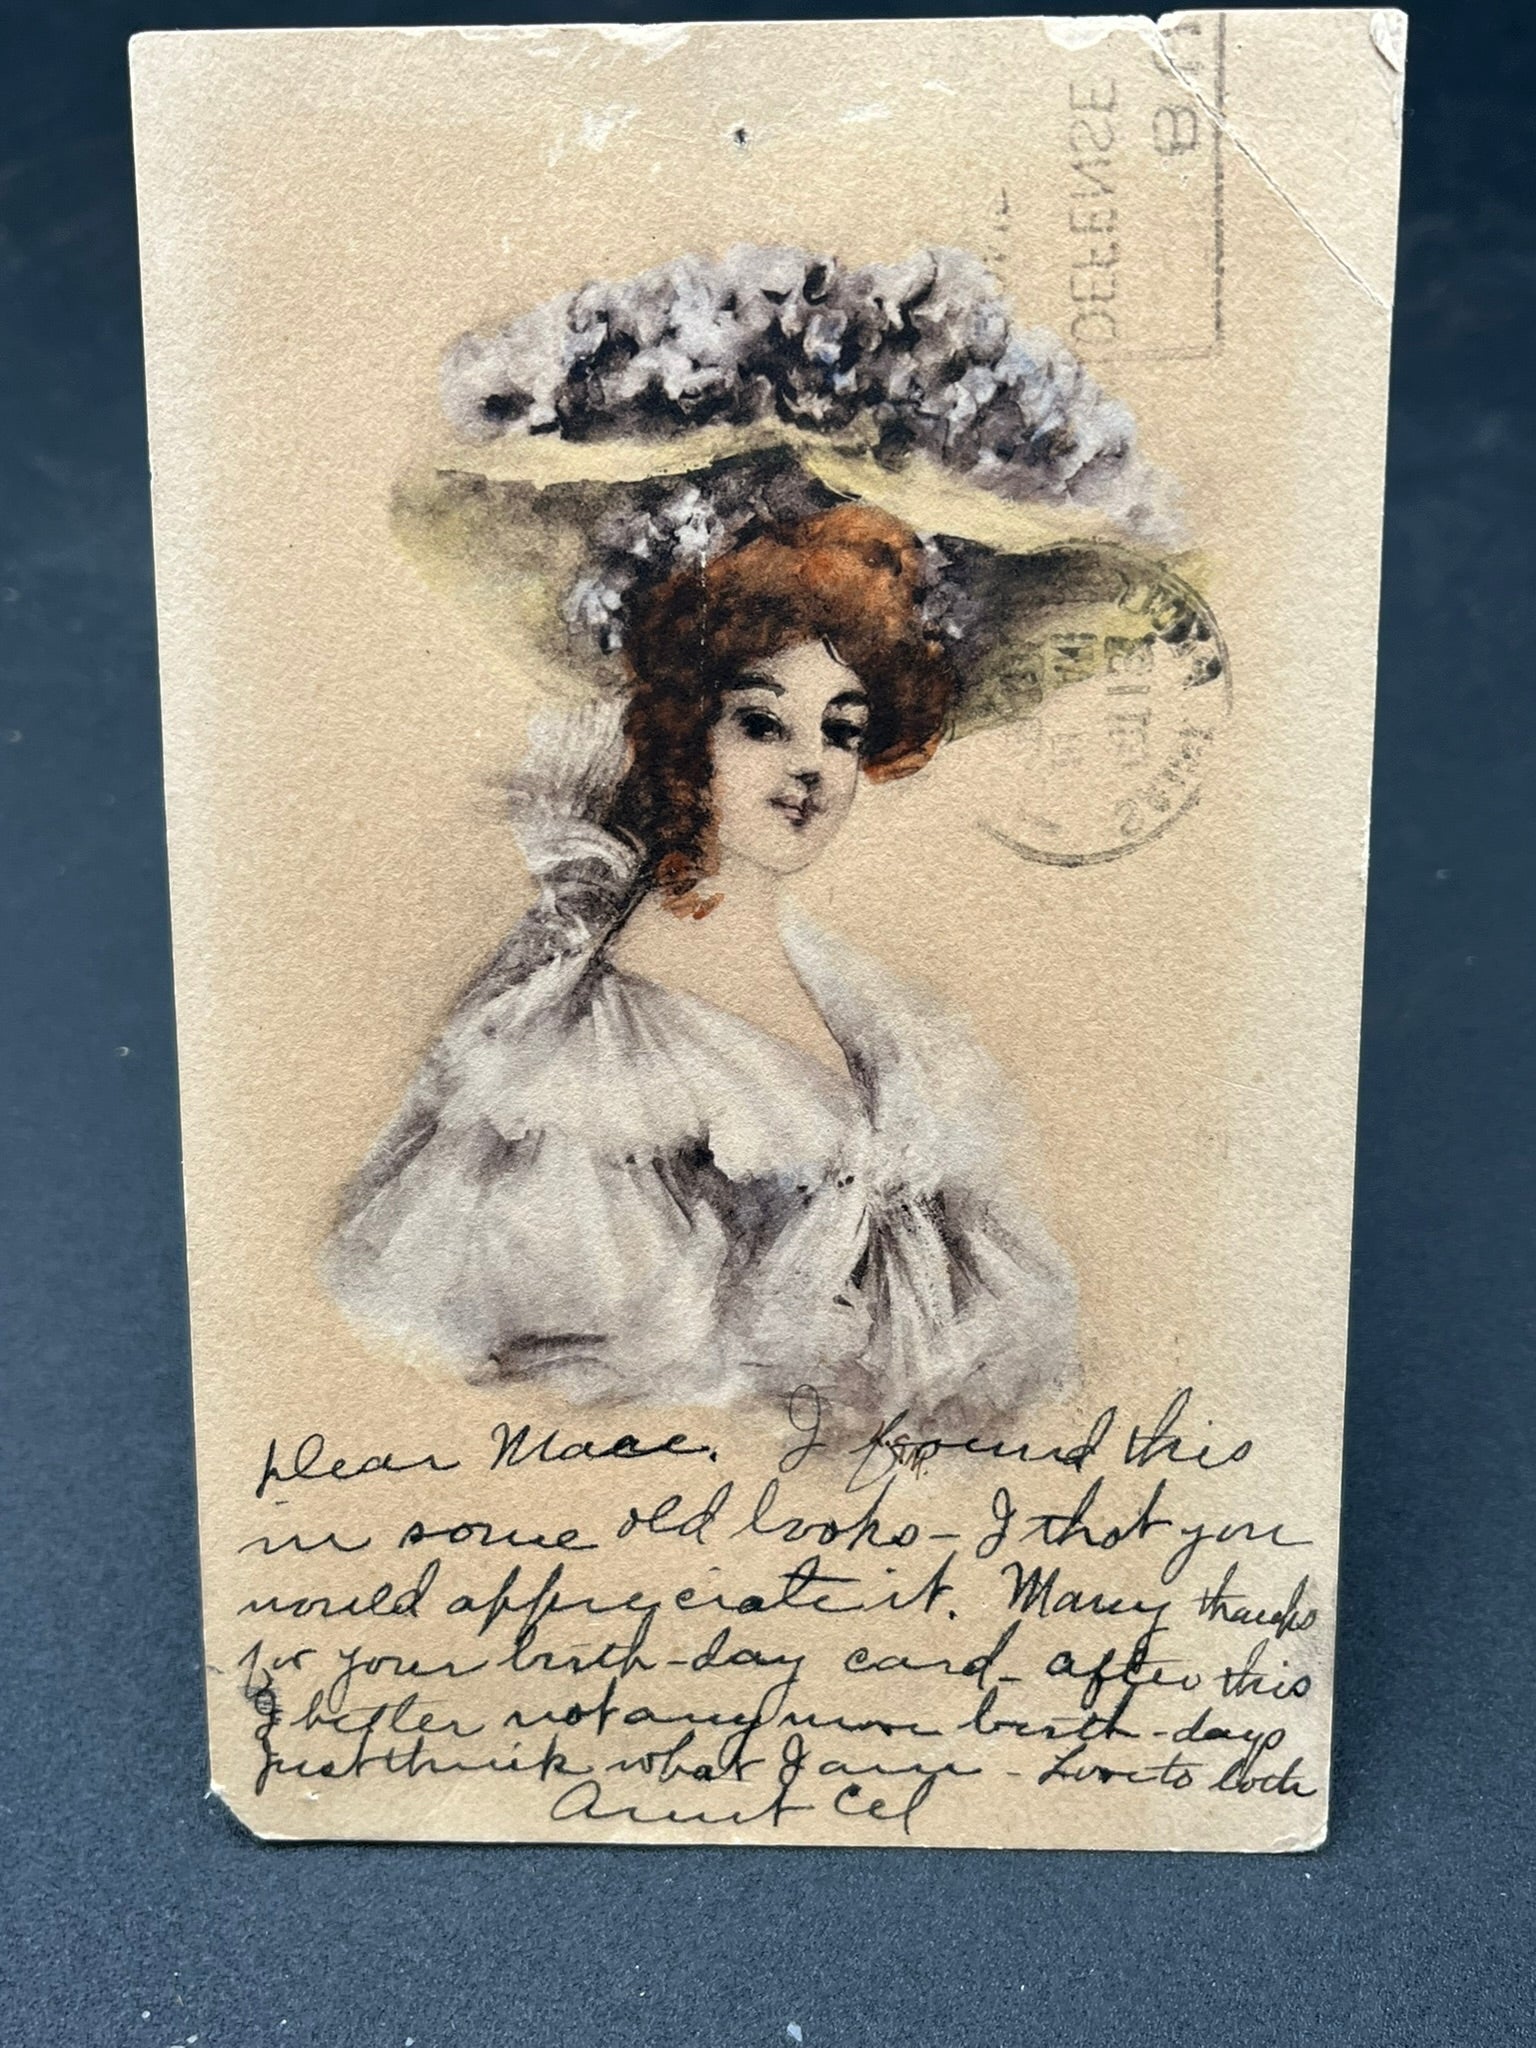 Dear Mace. I found this
in some old books - I thot you
would appreyciate it. Many thanks
for your birth-day card - after this
I better not any more birth-days
Just think what I am - Love to both
Aunt Cel
DEFENSE